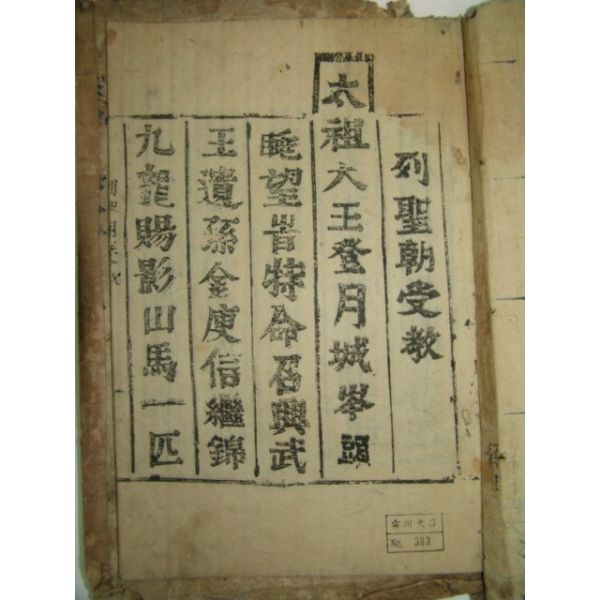 列聖朝受教
太祖大王登月城岑頭
眺望峕特命召興武
王遺孫金庾信繼錦
九龍賜影山馬一匹
No. 383